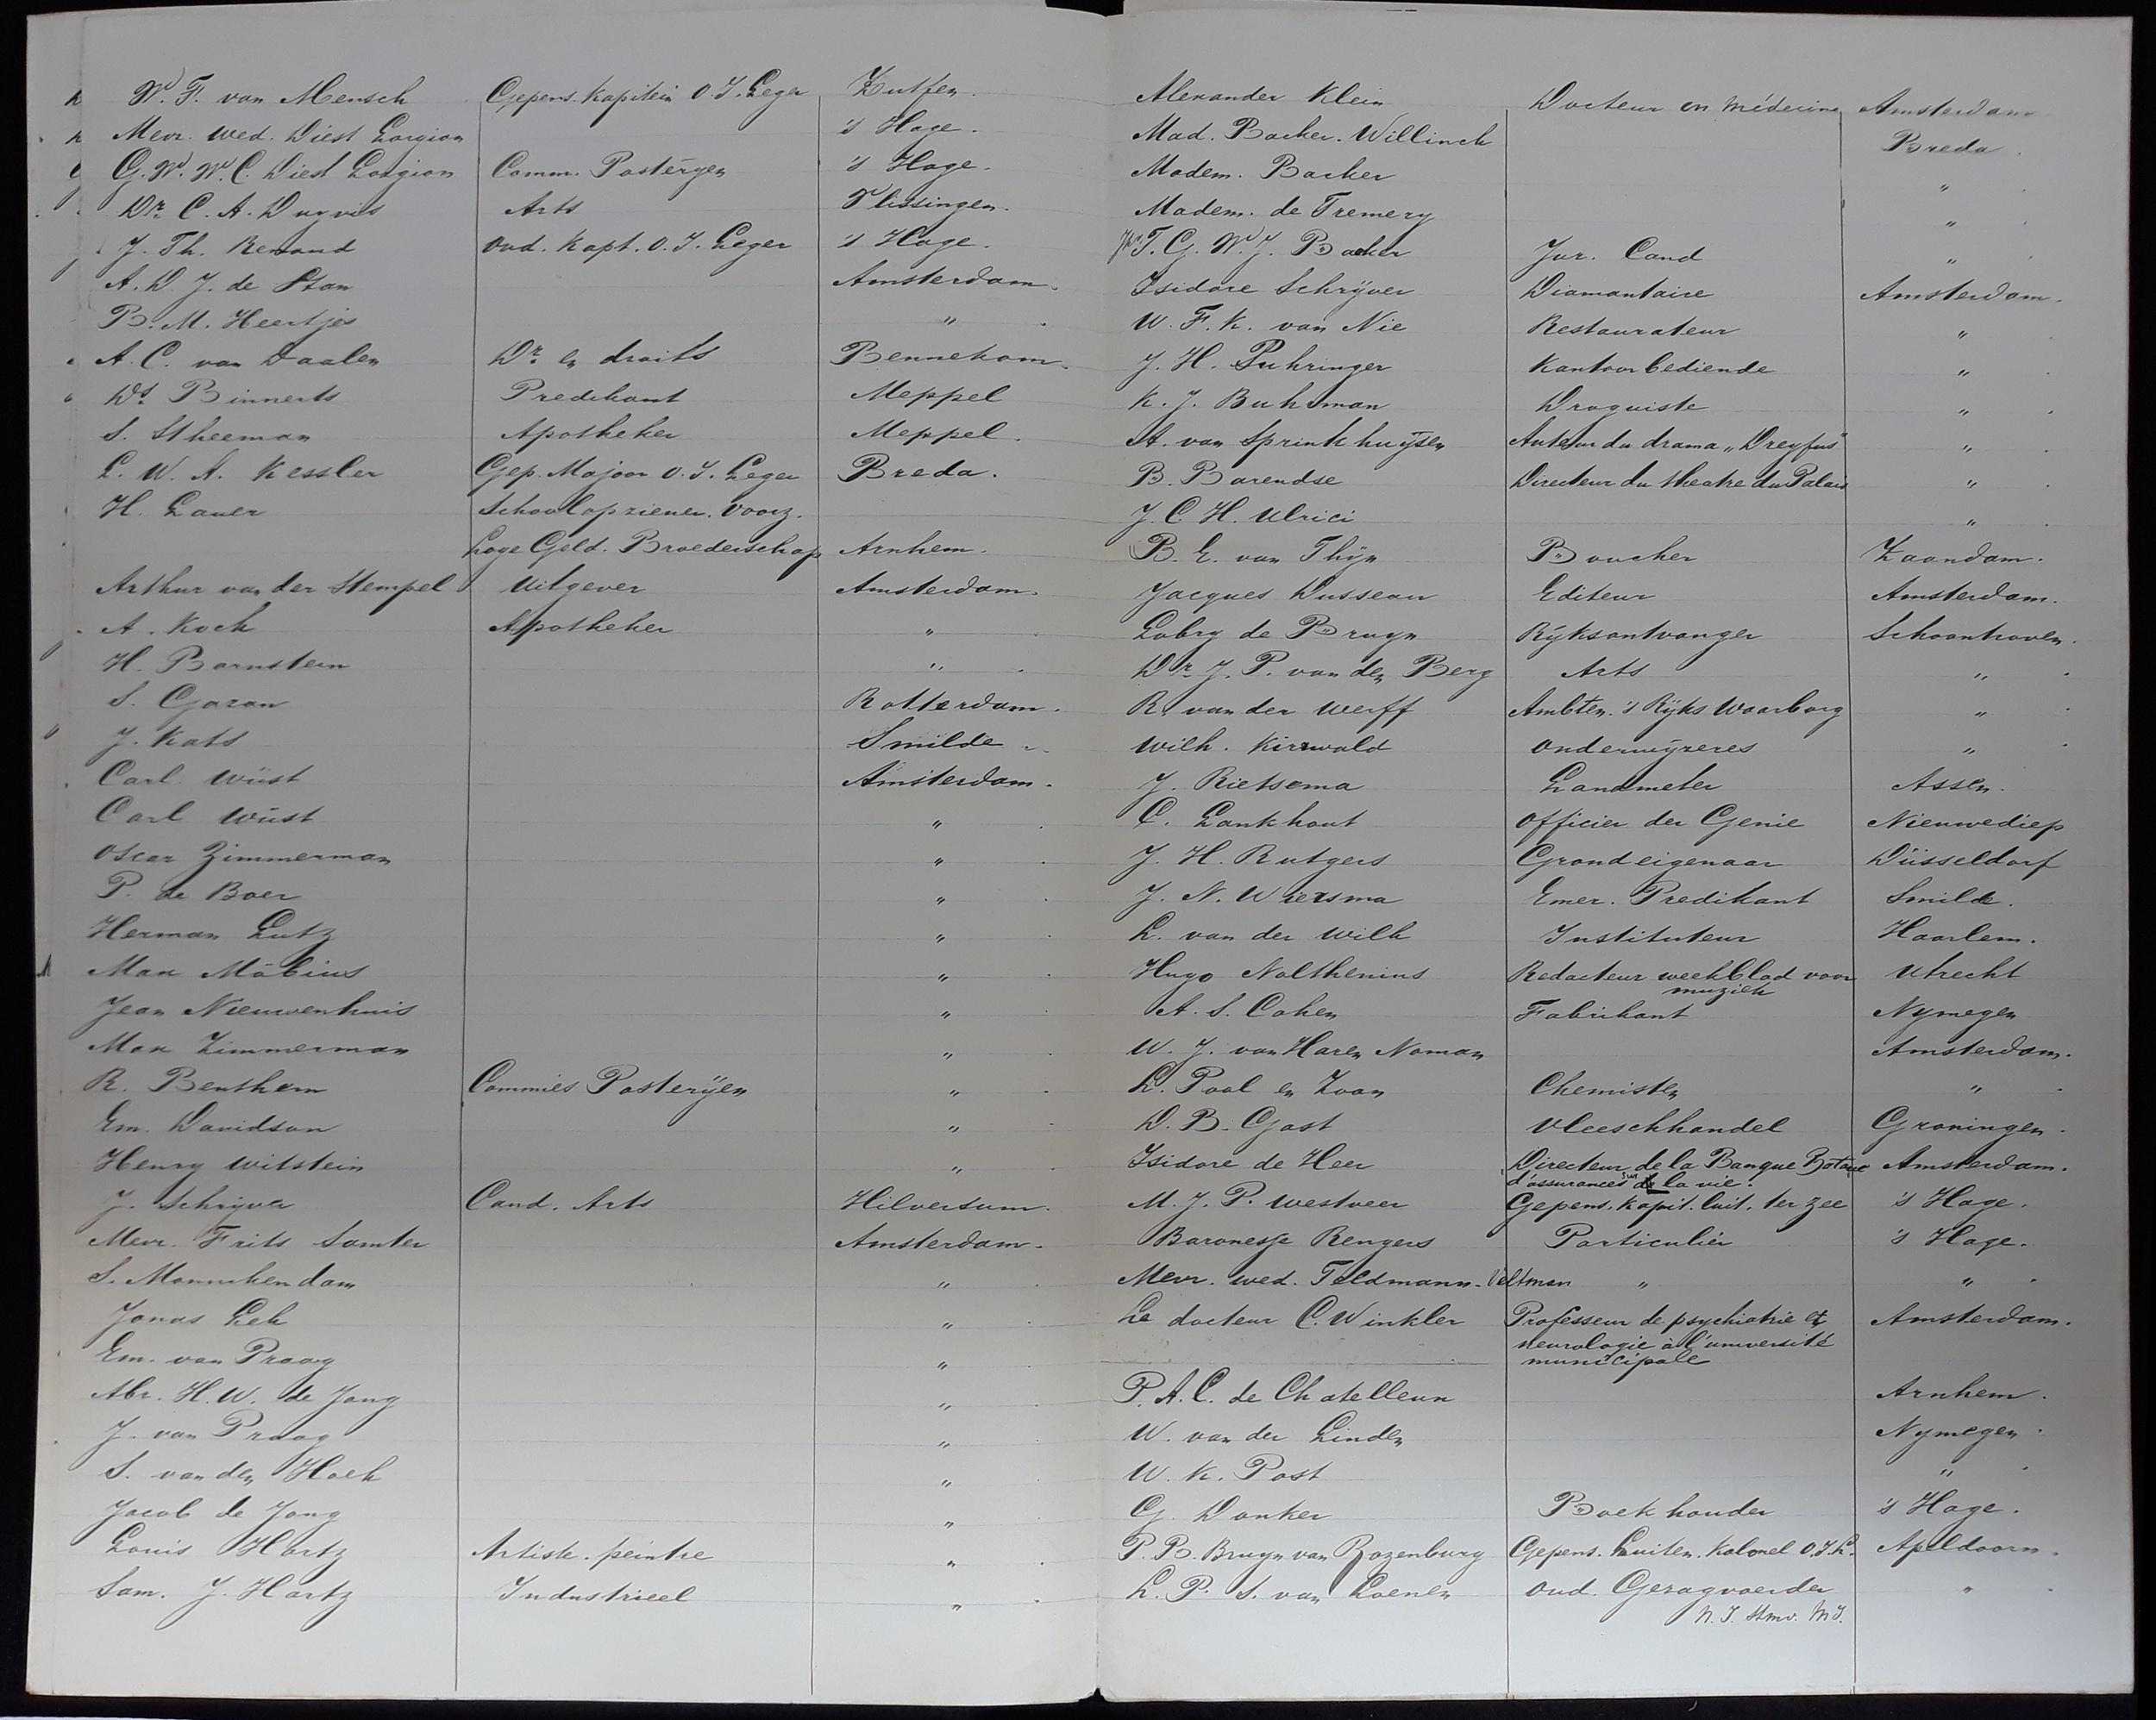 W. F. van Mensch Gepens. Kapitein O. I. Leger Zutfen.
Mevr. wed. Diest Lorgion 's Hage.
G. W. W. C. Diest Lorgion Comm. Posterÿen 's Hage.
Dr. C. A. Duyvis Arts Vlissingen.
J. Th. Renaud oud. Kapt. O. I. Leger 's Hage.
A. D. J. de Stan Amsterdam.
B. M. Heertjes "
A. C. van Daalen Dr. en droits Bennekom.
Ds. Binnerts Predikant Meppel
S. Stheeman Apotheker Meppel.
L. W. A. Kessler Gep. Majoor O. I. Leger Breda.
H. Lauer Schoolopziener. Voorz.
Loge Geld. Broederschap Arnhem.
Arthur van der Stempel Uitgever Amsterdam.
A. Koch Apotheker "
H. Barnstein "
S. Gazan Rotterdam.
J. Kats Smilde
Carl Wüst Amsterdam.
Carl Wüst "
Oscar Zimmerman "
P. de Boer "
Herman Lutz "
Max Möbius "
Jean Nieuwenhuis "
Max Zimmerman "
R. Benthem Commies Posterÿen "
Em. Davidson "
Henry Witstein "
J. Schryver Cand. Arts Hilversum.
Mevr. Frits Samter Amsterdam.
S. Monnikendam "
Jonas Lek "
Em. van Praag "
Abr. H. W. de Jong "
J. van Praag "
S. van den Hoek "
Jacob de Jong "
Louis Hartz Artiste-peintre "
Sam. J. Hartz Industrieel "
Alexander Klein Docteur en Médecine Amsterdam
Mad. Backer-Willinck Breda.
Madem. Backer "
Madem. de Tremery "
Jhr. T. G. W. J. Backer Jur. Cand "
Isidore Schrÿver Diamantaire Amsterdam.
W. F. K. van Nie Restaurateur "
J. H. Puhringer Kantoorbediende "
K. J. Buhrman Droguiste "
A. van Sprinkhuÿsen Auteur du drama „Dreyfus" "
B. Barendse Directeur du theatre du Palais "
J. C. H. Ulrici "
B. E. van Thÿn Boucher Zaandam.
Jacques Dusseau Editeur Amsterdam.
Lobry de Bruyn Rÿksontvanger Schoonhoven.
Dr. J. P. van den Berg Arts "
R. van der Werff Ambten. 's Rÿks Waarborg "
Wilh. Kirrwald onderwÿzeres "
J. Rietsema Landmeter Assen.
C. Lankhout officier der Genie Nieuwediep
J. H. Rutgers Grondeigenaar Düsseldorf
J. N. Wiersma Emer. Predikant Smilde.
L. van der Wilk Instituteur Haarlem.
Hugo Nolthenius Redacteur weekblad voor Utrecht
muziek
A. S. Cohen Fabrikant Nymegen
W. J. van Haren Noman Amsterdam.
L. Pool en Zoon Chemisten "
D. B. Gast vleeschhandel Groningen.
Isidore de Heer Directeur de la Banque Amsterdam.
d'assurances sur la vie.
M. J. P. Westveer Gepens. Kapit. luit. ter zee 's Hage.
Baronesse Rengers Particulier 's Hage.
Mevr. wed. Feldmann-Veltman " "
Le docteur C. Winkler Professeur de psychiatrie et Amsterdam.
neurologie à l'université
municipale
P. A. C. de Chatelleux Arnhem.
W. van der Linden Nymegen
W. K. Post "
G. Donker Boekhouder 's Hage.
P. B. Bruyn van Rozenburg Gepens. Luiten. Kolonel O. I. L. Apeldoorn.
L. P. S. van Loenen oud. Gezagvoerder "
N. I. Stmv. Mÿ.